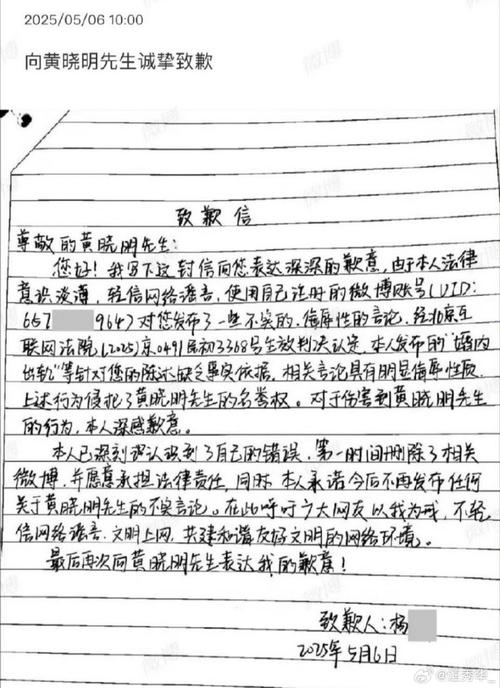 2025/05/06 10:00
向黄晓明先生诚挚致歉
致歉信
尊敬的黄晓明先生:
您好!我写下这封信向您表达深深的歉意,由于本人法律
意识淡薄,轻信网络谣言,使用自己注册的微博账号(UID:
657 9647)对您发布了一些不实的、侮辱性的言论。经北京互
联网法院(2025)京0491民初3368号生效判决认定,本人发布的"婚内
出轨"等针对您的陈述缺乏事实依据,相关言论具有明显侮辱性质,
上述行为侵犯了黄晓明先生的名誉权。对于伤害到黄晓明先生
的行为,本人深感歉意。
本人已深刻认识到了自己的错误,第一时间删除了相关
微博,并愿意承担法律责任,同时,本人承诺今后不再发布任何
关于黄晓明先生的不实言论。在此呼吁广大网友以我为戒,不轻
信网络谣言,文明上网,共建和谐友好文明的网络环境。
最后再次向黄晓明先生表达我的歉意!
致歉人:杨
2025年5月6日